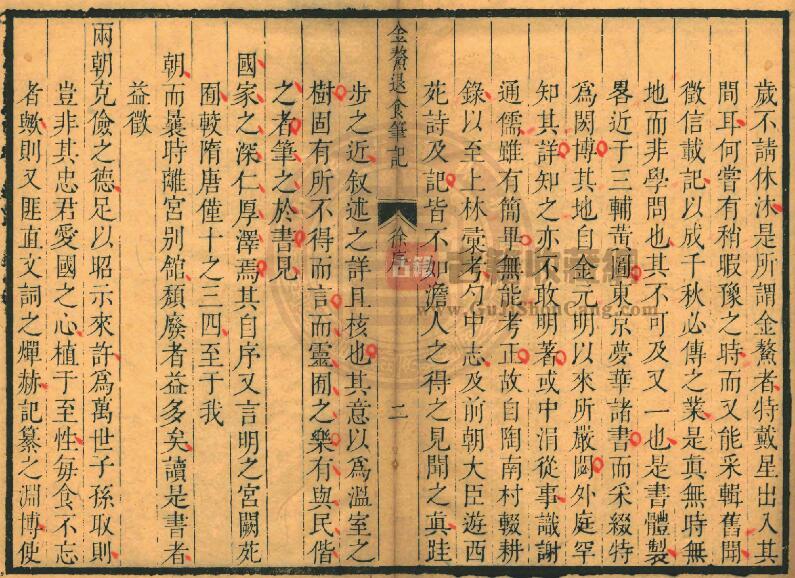 歲不請休沐是所謂金鰲者特戴星出入其
間耳何嘗有稍暇豫之時而又能采輯舊聞
徵信載記以成千秋必傳之業是眞無時無
地而非學問也其不可及又一也是書體製
畧近于三輔黃圖東京夢華諸書而采綴特
爲闕博其地自金元明以來所嚴閟外庭罕
知其詳知之亦不敢明著或中涓從事識謝
通儒雖有簡畢無能考正故自陶南村輟耕
錄以至上林彚考勺中志及前朝大臣遊西
苑詩及記皆不如澹人之得之見聞之眞跬
金鰲退食筆記
徐序
二
步之近叙述之詳且核也其意以爲溫室之
樹固有所不得而言而靈囿之樂有與民偕
之者筆之於書見
國家之深仁厚澤焉其自序又言明之宮闕苑
囿較隋唐僅十之三四至于我
朝而曩時離宮别館頽廢者益多矣讀是書者
益徵
兩朝克儉之德足以昭示來許爲萬世子孫取則
豈非其忠君愛國之心植于至性每食不忘
者歟則又匪直文詞之燀赫記纂之淵博使
www.GuJiShouCang.com